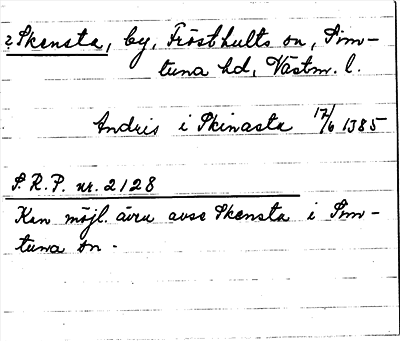 ? Skensta, by, Frösthults sn, Sim-
tuna hd, Västm. l.
Andris i Skinasta 17/6 1385
S.R.P. nr. 2128
Kan möjl. även avse Skensta i Sim-
tuna sn.